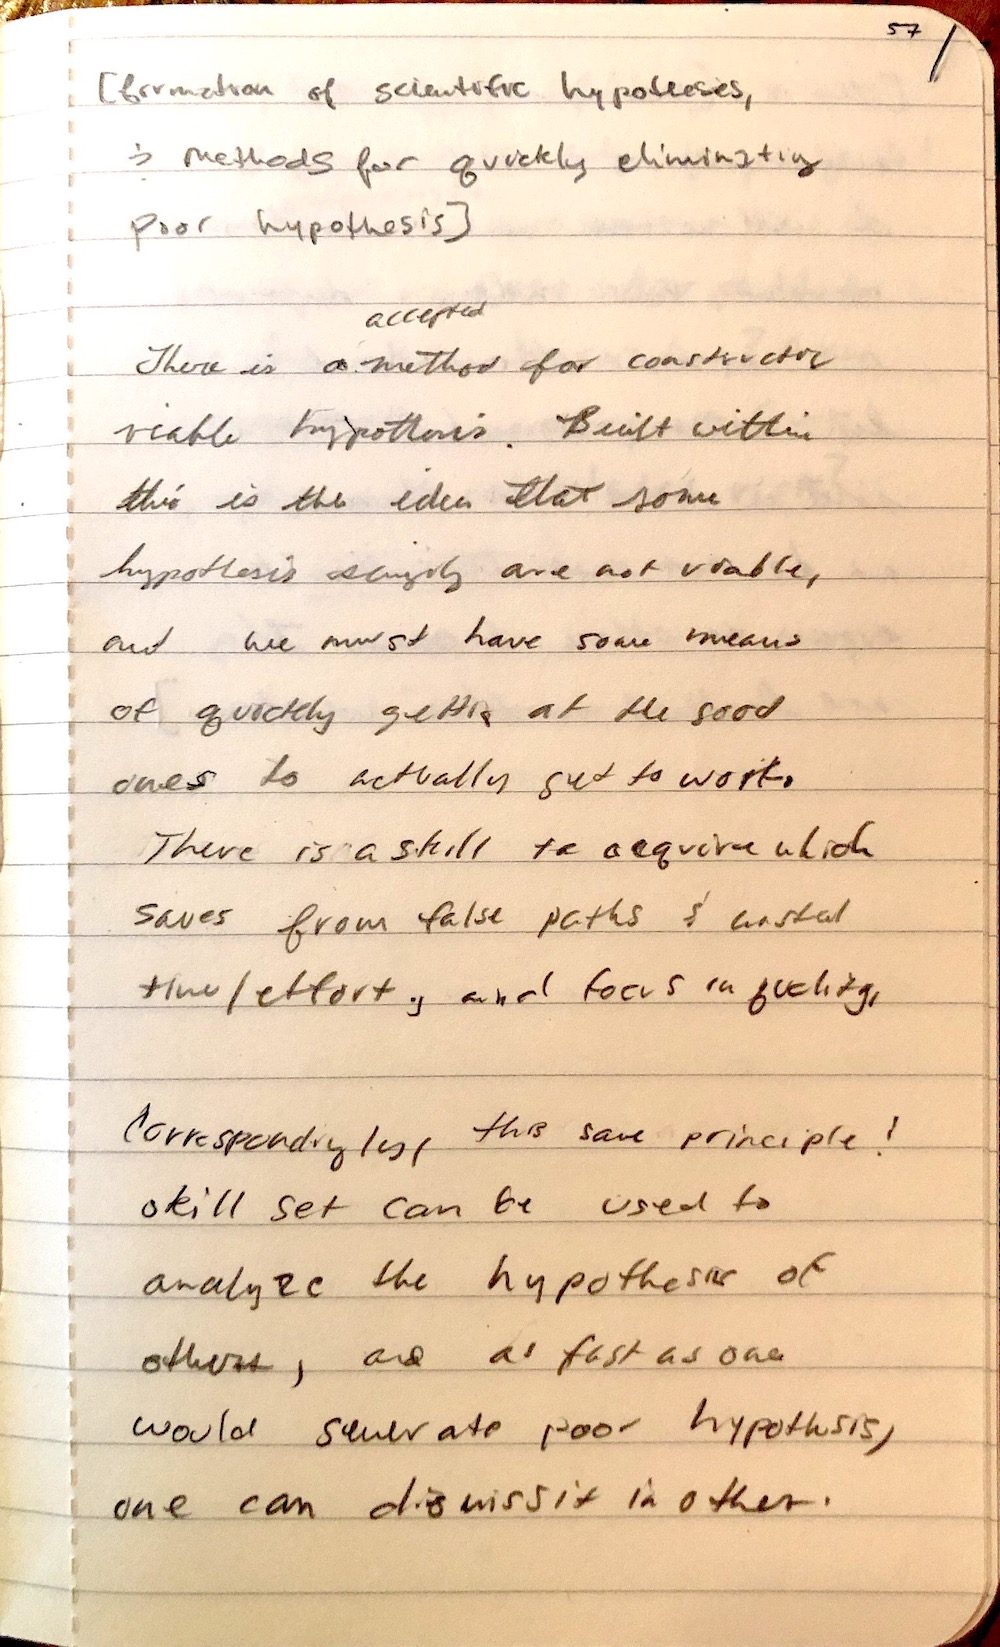 57
[formation of scientific hypotheses,
& methods for quickly eliminating
poor hypothesis]
accepted
There is a method for constructing
viable hypothesis. Built within
this is the idea that some
hypothesis simply are not viable,
and we must have some means
of quickly getting at the good
ones to actually get to work.
There is a skill to acquire which
saves from false paths & wasted
time/effort, and focus in quality.
Correspondingly, this same principle!
skill set can be used to
analyze the hypothesis of
others, and as fast as one
would generate poor hypothesis,
one can dismiss it in other.